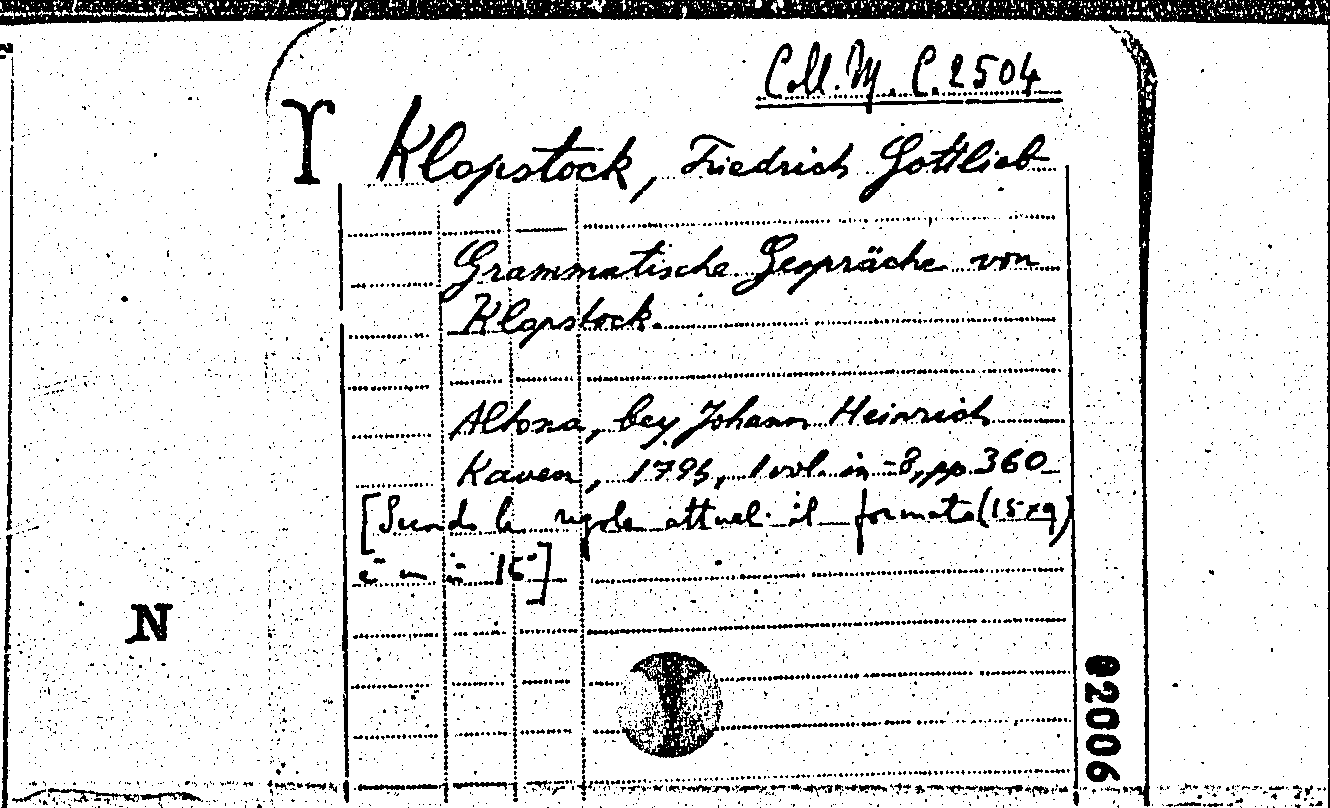 Coll. M. C. 2504
Klopstock, Friedrich Gottlieb
Grammatische Gespräche von
Klopstock.
Altona, bey Johann Heinrich
Kaven, 1794, 1 vol. in-8, pp. 360
[Secondo le regole attual. il formato (15x9)
è un in 16°]
N
02006